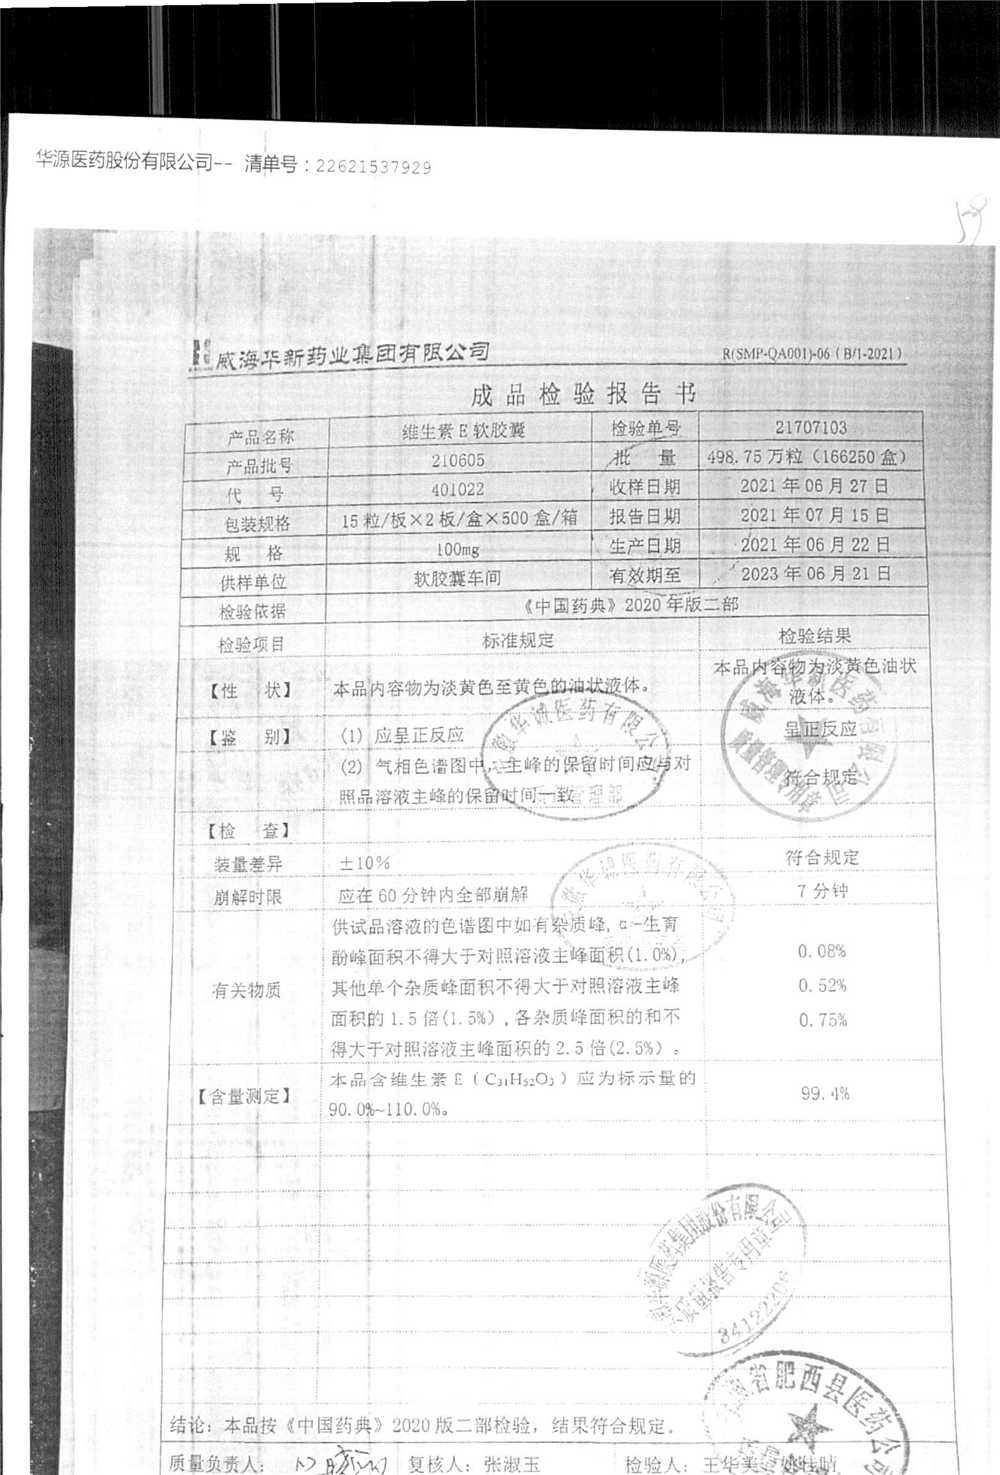 华源医药股份有限公司-- 清单号：22621537929
59
威海华新药业集团有限公司 R(SMP-QA001)-06（B/1-2021）
成品检验报告书
产品名称 维生素E软胶囊 检验单号 21707103
产品批号 210605 批 量 498.75万粒（166250盒）
代 号 401022 收样日期 2021年06月27日
包装规格 15粒/板×2板/盒×500盒/箱 报告日期 2021年07月15日
规 格 100mg 生产日期 2021年06月22日
供样单位 软胶囊车间 有效期至 2023年06月21日
检验依据 《中国药典》2020年版二部
检验项目 标准规定 检验结果
【性 状】 本品内容物为淡黄色至黄色的油状液体。 本品内容物为淡黄色油状
液体。
【鉴 别】 (1) 应呈正反应 呈正反应
(2) 气相色谱图中，主峰的保留时间应与对
照品溶液主峰的保留时间一致 符合规定
【检 查】
装量差异 ±10% 符合规定
崩解时限 应在60分钟内全部崩解 7分钟
有关物质 供试品溶液的色谱图中如有杂质峰，α-生育
酚峰面积不得大于对照溶液主峰面积(1.0%)， 0.08%
其他单个杂质峰面积不得大于对照溶液主峰 0.52%
面积的1.5倍(1.5%)，各杂质峰面积的和不 0.75%
得大于对照溶液主峰面积的2.5倍(2.5%)。
【含量测定】 本品含维生素E（C₃₁H₅₂O₃）应为标示量的
90.0%~110.0%。 99.4%
质量报告专用章
省肥西县医药公
结论：本品按《中国药典》2020版二部检验，结果符合规定。
质量负责人： 复核人：张淑玉 检验人：王华美